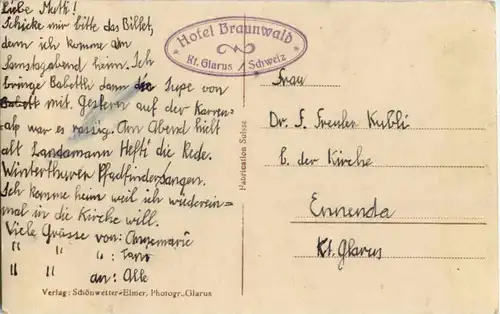 Liebe Mutti!
Schicke mir bitte das Billet,
denn ich komme am
Samstagabend heim. Ich
bringe Babetth dann die Jupe von
Babett mit. Gestern auf der Karren-
alp war es rassig. Am Abend hielt
alt Landamann Hefti die Rede.
Winterthurer Pfadfinder sangen.
Ich komme heim weil ich wiederein=
mal in die Kirche will.
Viele Grüsse von: Annemarie
" " ":
" " an: Alle
Verlag: Schönwetter-Elmer, Photogr., Glarus
Fabrication Suisse
Hotel Braunwald
Kt. Glarus / Schweiz
Frau
Dr. F. Freuler Kubli
b. der Kirche
Ennenda
Kt. Glarus